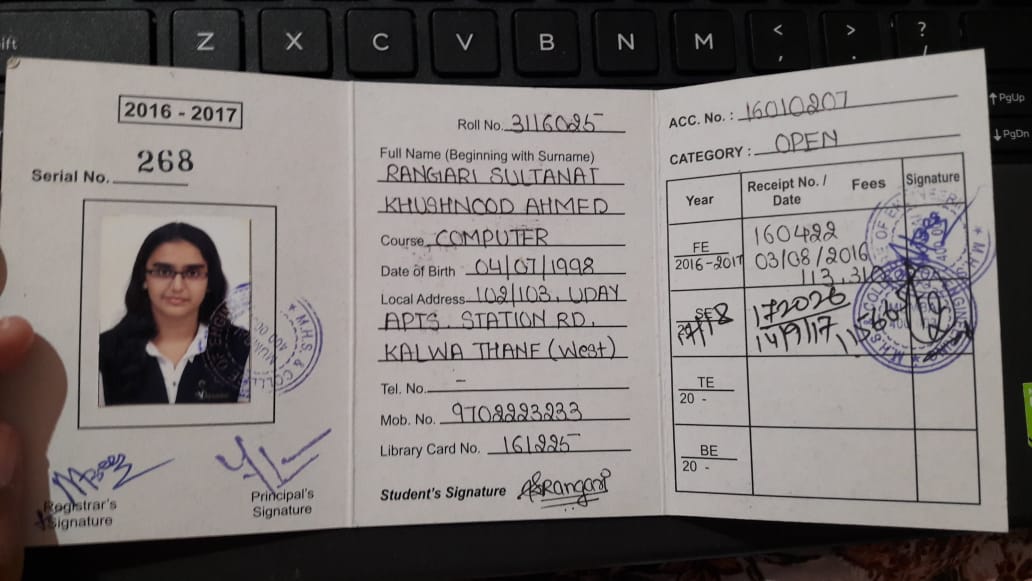 ift
Z X C V B N M < , > . ? /
PgUp
PgDn
2016 - 2017
Serial No. 268
Registrar's
Signature
Principal's
Signature
Roll No. 3116025
Full Name (Beginning with Surname)
RANGARI SULTANAT
KHUSHNOOD AHMED
Course COMPUTER
Date of Birth 04/07/1998
Local Address 102/103, UDAY
APTS. STATION RD,
KALWA THANE (West)
Tel. No. -
Mob. No. 9702223233
Library Card No. 161225
Student's Signature SRangari
ACC. No. : 16010207
CATEGORY : OPEN
Year Receipt No. / Date Fees Signature
FE 160422
2016-2017 03/08/2016
113,310
SE 172026
17/18 14/9/17
TE
20 -
BE
20 -